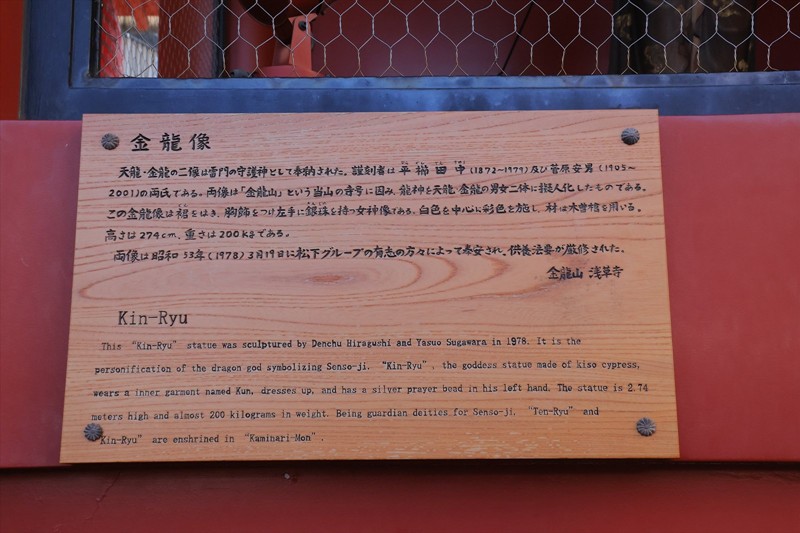 金龍像
天龍・金龍の二像は雷門の守護神として奉納された。謹刻者は平櫛田中(1872~1979)及び菅原安男(1905~
2001)の両氏である。両像は「金龍山」という当山の寺号に因み、龍神を天龍・金龍の男女二体に擬人化したものである。
この金龍像は裙をはき、胸飾をつけ左手に銀珠を持つ女神像である。白色を中心に彩色を施し、材は木曽檜を用いる。
高さは274cm、重さは200kgである。
両像は昭和53年(1978)3月19日に松下グループの有志の方々によって奉安され、供養法要が厳修された。
金龍山 浅草寺
Kin-Ryu
This “Kin-Ryu” statue was sculptured by Denchu Hiragushi and Yasuo Sugawara in 1978. It is the
personification of the dragon god symbolizing Senso-ji. “Kin-Ryu”, the goddess statue made of kiso cypress,
wears a inner garment named Kun, dresses up, and has a silver prayer bead in his left hand. The statue is 2.74
meters high and almost 200 kilograms in weight. Being guardian deities for Senso-ji, “Ten-Ryu” and
Kin-Ryu” are enshrined in “Kaminari-Mon”.